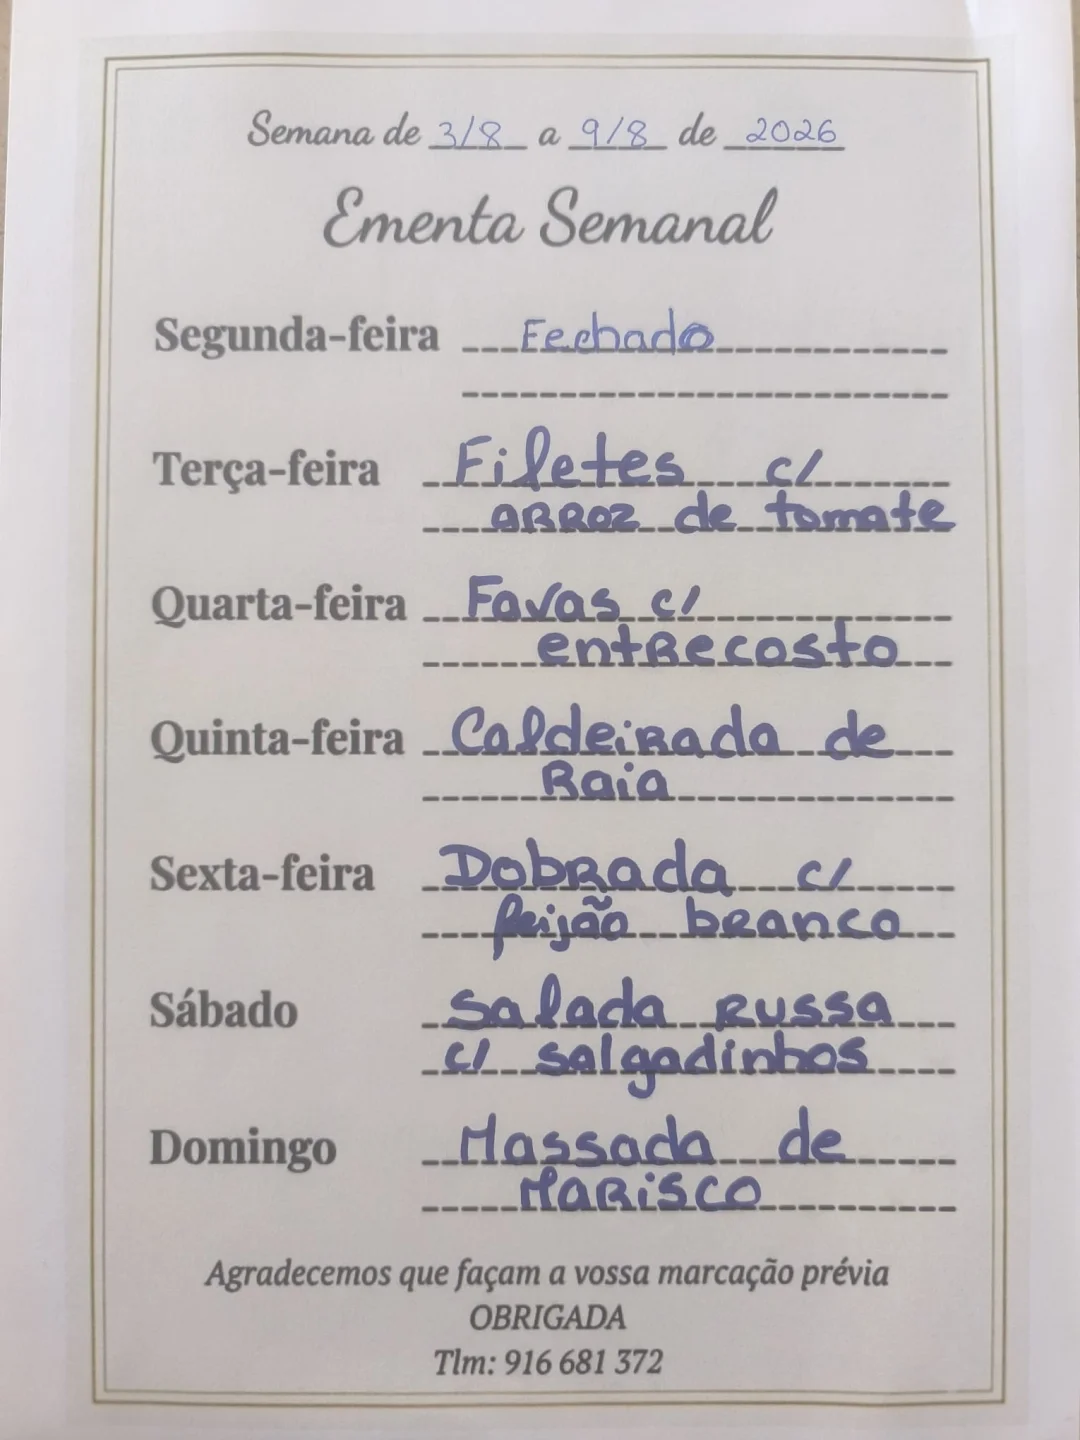 Semana de 3/8 a 9/8 de 2026
Ementa Semanal
Segunda-feira Fechado
Terça-feira Filetes c/
arroz de tomate
Quarta-feira Favas c/
entrecosto
Quinta-feira Caldeirada de
Raia
Sexta-feira Dobrada c/
feijão branco
Sábado Salada Russa
c/ salgadinhos
Domingo Massada de
Marisco
Agradecemos que façam a vossa marcação prévia
OBRIGADA
Tlm: 916 681 372